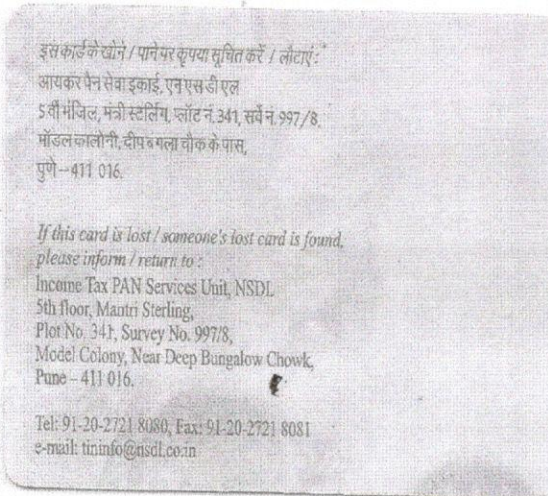 इस कार्ड के खोने / पाने पर कृपया सूचित करें / लौटाएं :
आयकर पैन सेवा इकाई, एन एस डी एल
5 वी मंजिल, मंत्री स्टर्लिंग, प्लॉट नं. 341, सर्वे नं. 997/8,
मॉडल कालोनी, दीप बंगला चौक के पास,
पुणे--411 016.
If this card is lost / someone's lost card is found,
please inform / return to :
Income Tax PAN Services Unit, NSDL
5th floor, Mantri Sterling,
Plot No. 341, Survey No. 997/8,
Model Colony, Near Deep Bungalow Chowk,
Pune – 411 016.
Tel: 91-20-2721 8080, Fax: 91-20-2721 8081
e-mail: tininfo@nsdl.co.in